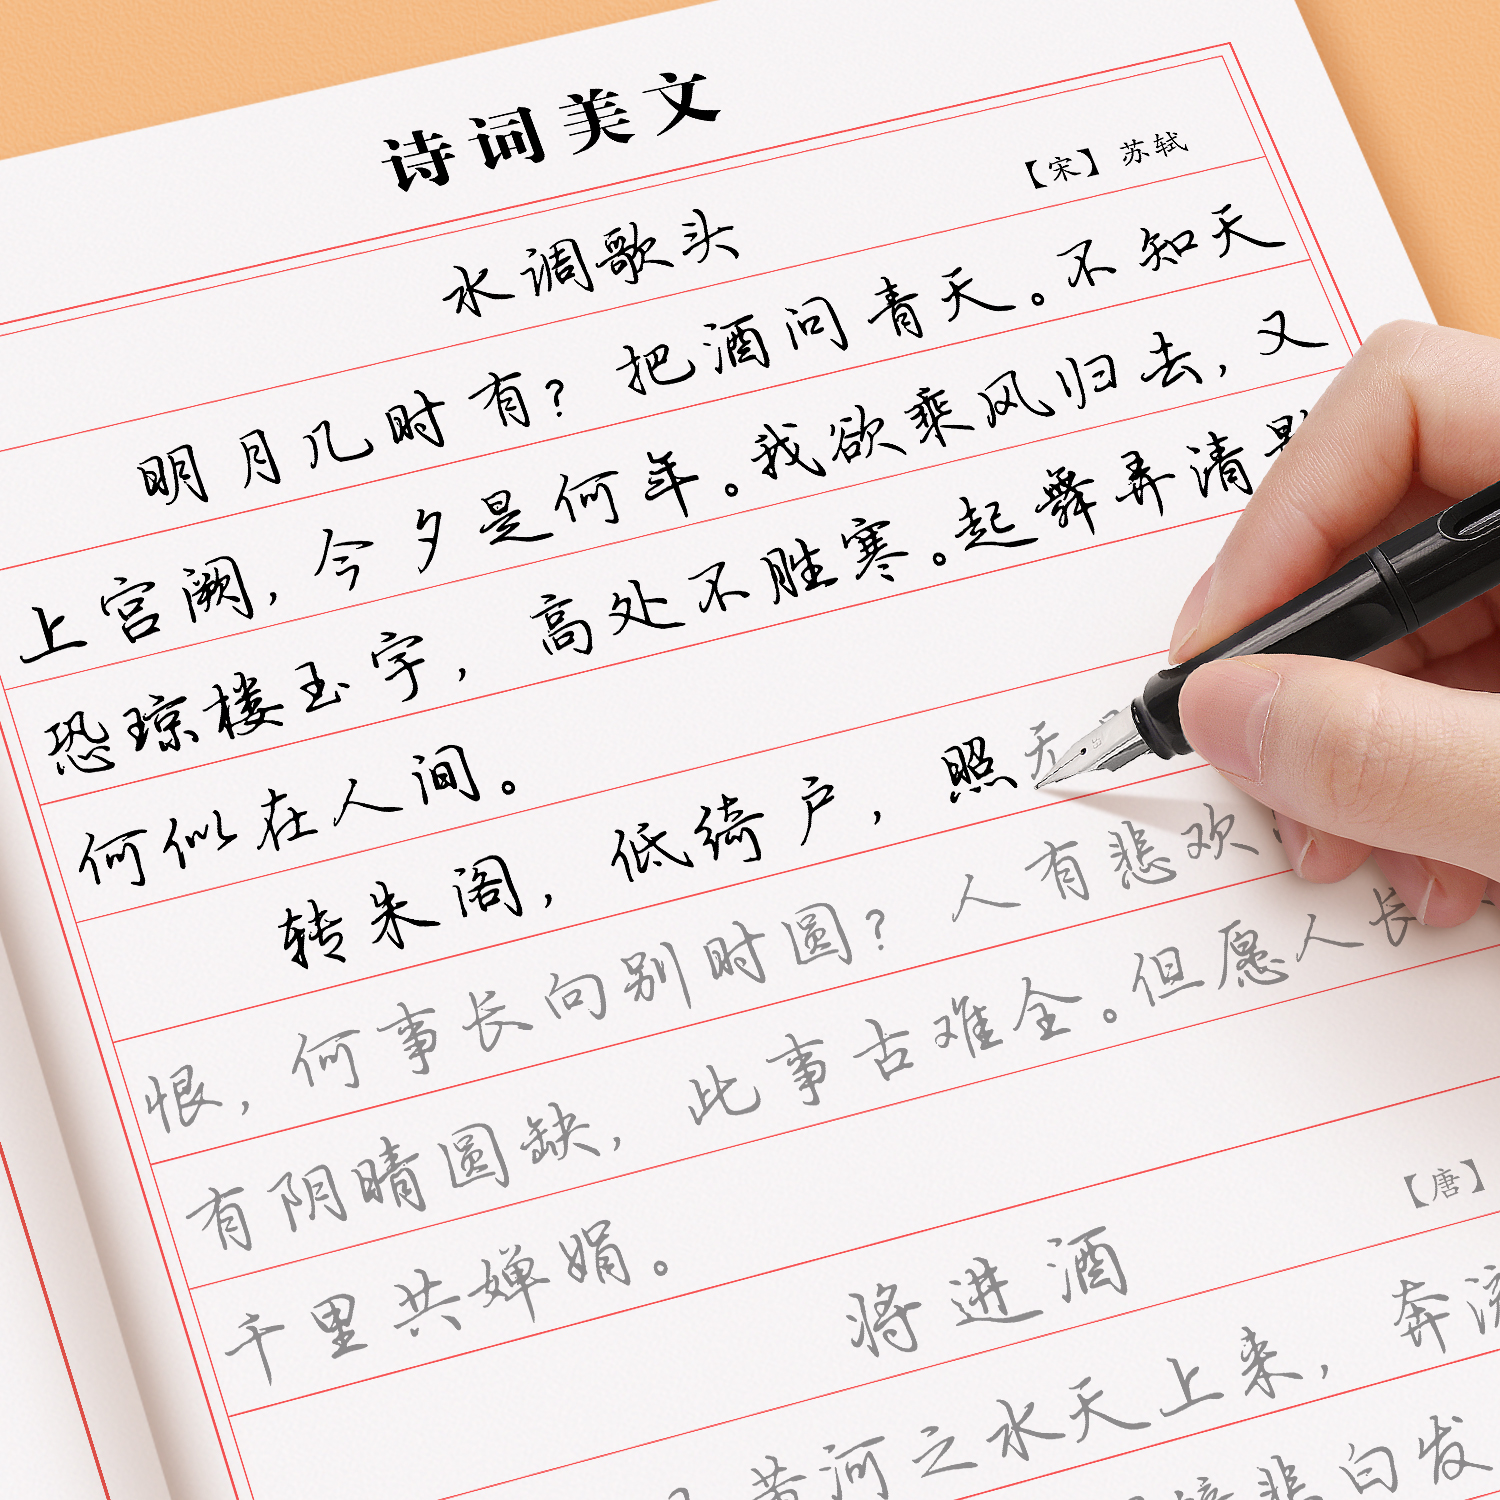 诗词美文
【宋】苏轼
水调歌头
明月几时有？把酒问青天。不知天
上宫阙，今夕是何年。我欲乘风归去，又
恐琼楼玉宇，高处不胜寒。起舞弄清
何似在人间。
转朱阁，低绮户，照天
恨，何事长向别时圆？人有悲欢
有阴晴圆缺，此事古难全。但愿人长
千里共婵娟。
【唐】
将进酒
黄河之水天上来，奔流
悲白发